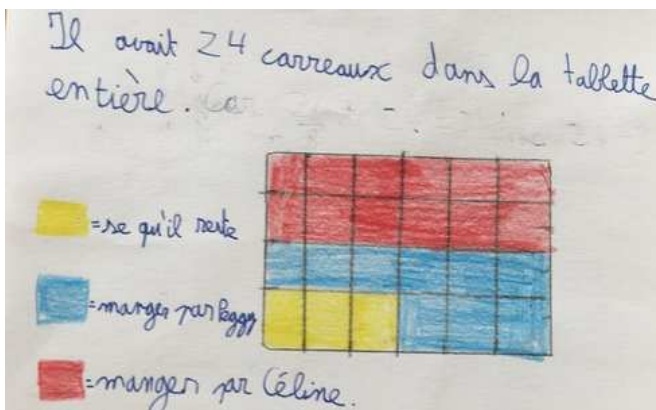 Il avait 24 carreaux dans la tablette
entière.
=se qu'il reste
=manger par Peggy
=manger par Céline.